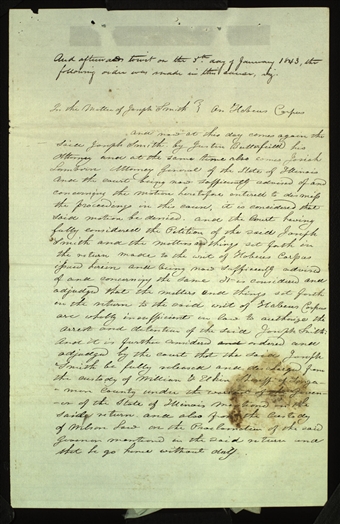 And afterwards towit on the 5th day of January 1843, the
following order was made in this cause, viz,
In the Matter of Joseph Smith } On Habeus Corpus
And now at this day comes again the
said Joseph Smith by Justin Butterfield his
Attorney and at the same time also comes Josiah
Lamborn Attorney General of the State of Illinois
And the court being now sufficiently advised of and
concerning the motion heretofore entered to dismiss
the proceedings in this cause, it is considered that
said motion be denied. and the Court having
fully considered the Petition of the said Joseph
Smith and the matters and things set forth in
the return made to the writ of Habeus Corpus
issued herein and being now sufficiently advised
of and concerning the same. It is considered and
adjudged that the matters and things set forth
in the return to the said writ of Habeus Corpus
are wholly insufficient in law to authorize the
arrest and detention of the said Joseph Smith
And it is further considered and ordered and
adjudged by the court that the said Joseph
Smith be fully released and discharged from
the custody of William F Elkin Sheriff of Sanga-
mon County under the warrant of the Gover-
nor of the State of Illinois mentioned in the
said return, and also from the custody
of Wilson Law on the Proclamation of the said
Governor mentioned in the said return and
that he go hence without day.